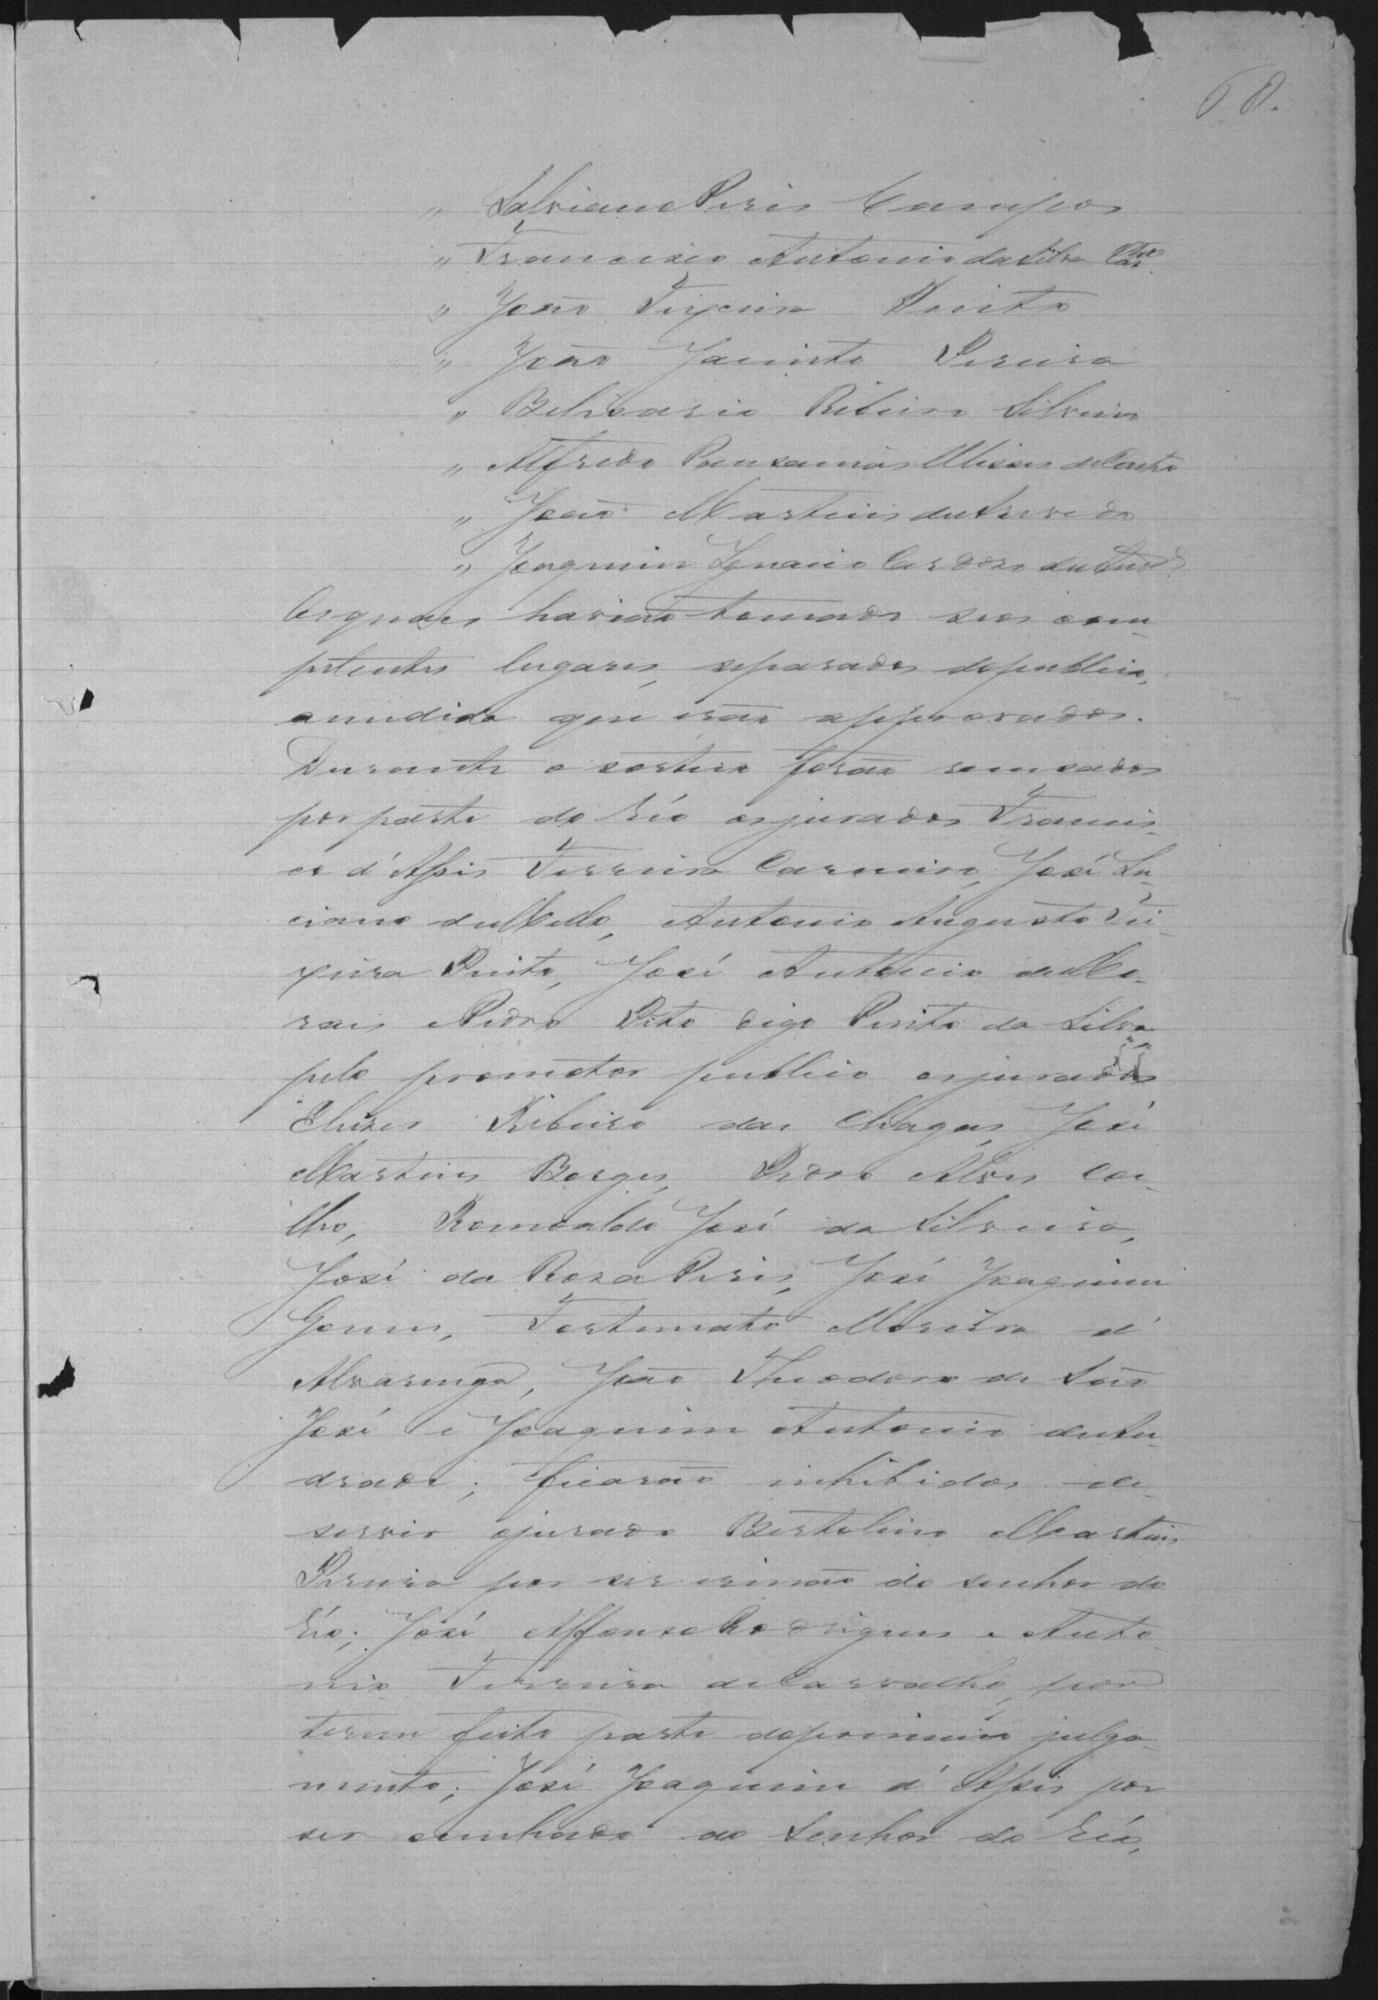 68.
" Salviano Pires Campos
" Francisco Antonio da Silva
" João Teixeira Pinto
" João Jacinto Pereira
" Belisario Ribeiro Silveira
" Alfredo Ulisses de Castro
" João Martins de Azevedo
" Joaquim Ignacio Cardozo de
Os quaes havião tomado seos com-
petentes lugares, separados do publico,
a medida que erão approvados.
Durante o sorteio forão recusados
por parte do Réo os jurados Francis-
co d'Assis Ferreira Carneiro, José Lu-
ciano de Mello, Antonio Augusto Tei-
xeira Pinto, José Antonio de Mo-
raes Pedro Pito digo Pinto da Silva
pelo promotor publico os jurados
Elizeo Ribeiro das Chagas, José
Martins Borges, Pedro Alves Coe-
lho, Romoaldo José da Silveira,
José da Roza Pires, José Joaquim
Gomes, Fortunato Moreira d'
Alvarenga, João Theodoro de São
José e Joaquim Antonio de An-
drade; ficarão inhibidos de
servir o jurado Bertolino Martins
Pereira por ser irmão do senhor do
Réo; José Affonso Rodrigues e Anto-
nio Ferreira de Carvalho, por
terem feito parte do primeiro julga-
mento; José Joaquim d'Assis por
ser cunhado do Senhor do Réo,